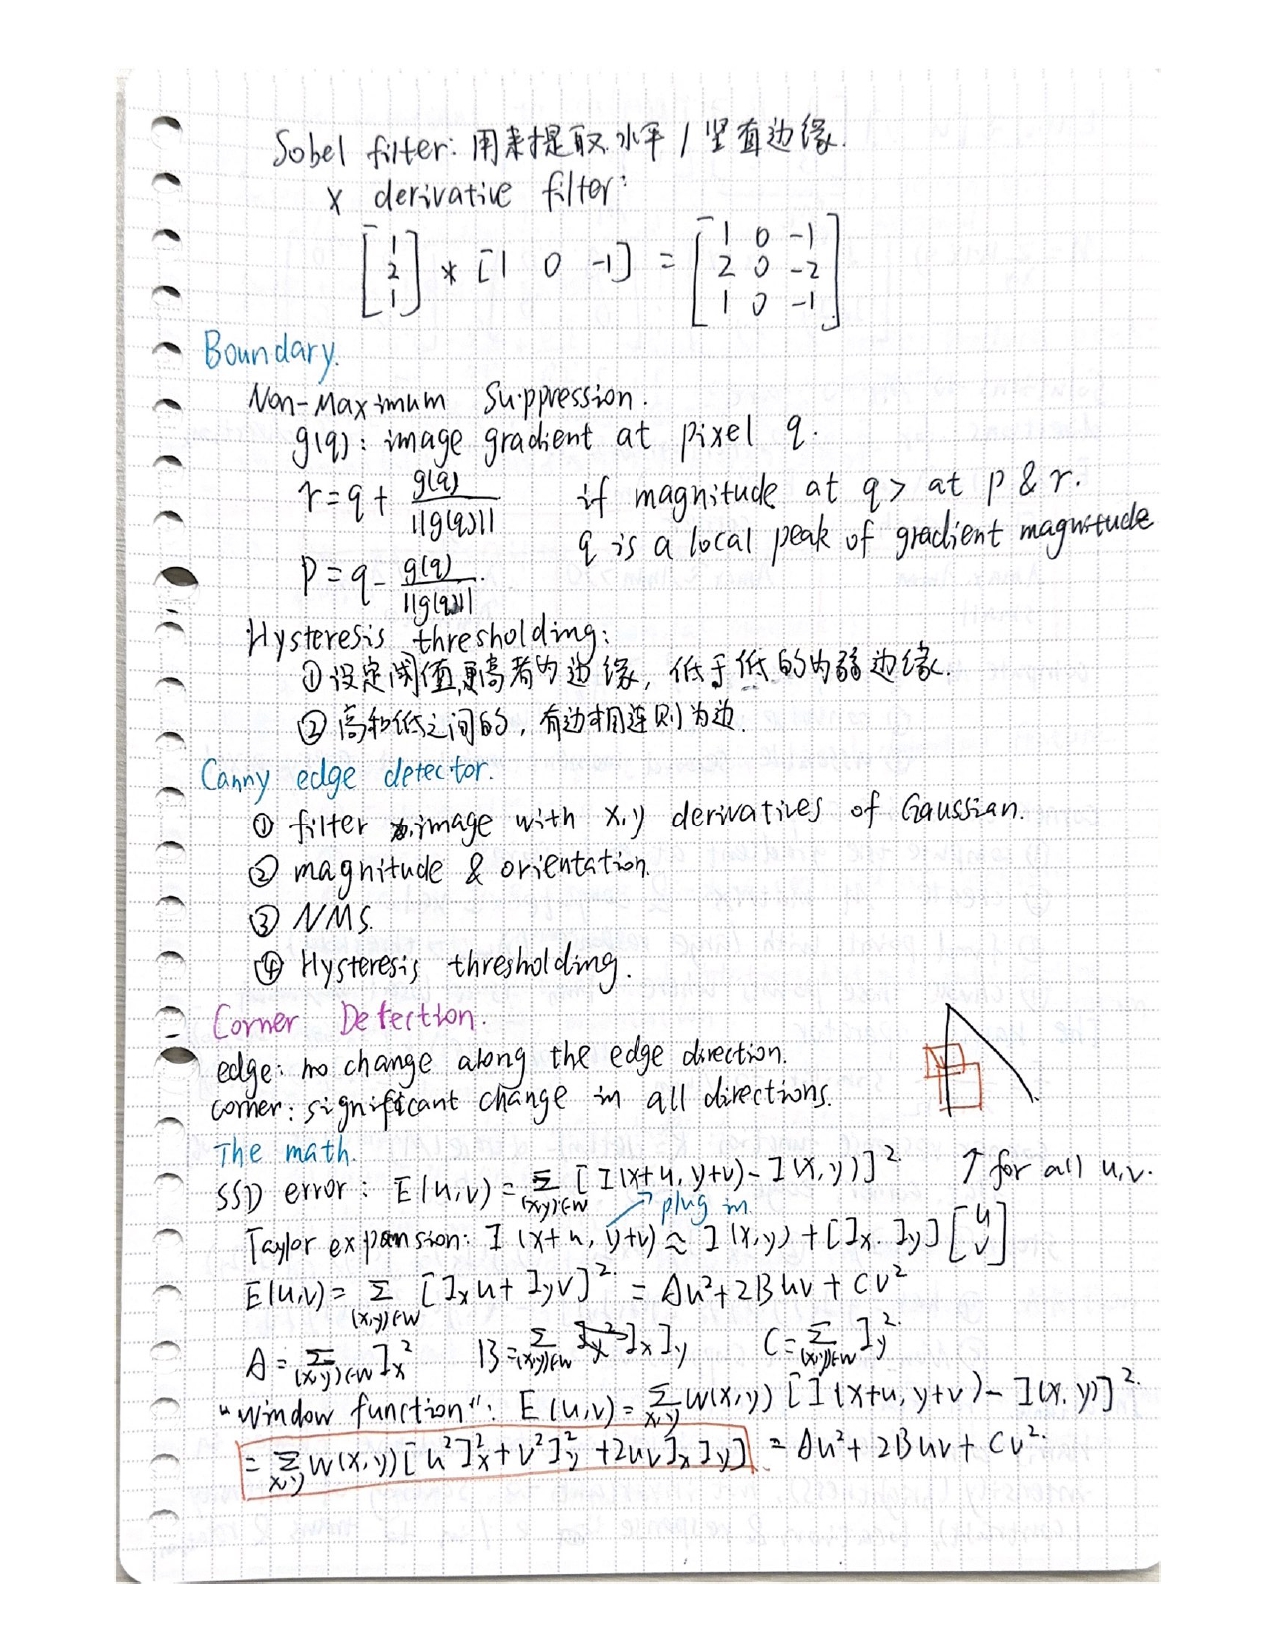 Sobel filter: 用来提取水平 / 竖直边缘.
x derivative filter:
[1 2 1] * [1 0 -1] = [1 0 -1
2 0 -2
1 0 -1]
Boundary.
Non-Maximum Suppression.
g(q): image gradient at pixel q.
r = q + g(q) / ||g(q)|| if magnitude at q > at p & r.
q is a local peak of gradient magnitude
p = q - g(q) / ||g(q)||
Hysteresis thresholding:
① 设定阈值,更高者为边缘, 低于低的为弱边缘.
② 高和低之间的, 有边相连则为边.
Canny edge detector.
① filter image with x, y derivatives of Gaussian.
② magnitude & orientation.
③ NMS.
④ Hysteresis thresholding.
Corner Detection.
edge: no change along the edge direction.
corner: significant change in all directions.
The math.
SSD error: E(u,v) = Σ_(x,y)∈W [I(x+u, y+v) - I(x,y)]² ↑ for all u,v.
plug in
Taylor expansion: I(x+u, y+v) ≈ I(x,y) + [Ix Iy] [u v]
E(u,v) = Σ_(x,y)∈W [Ix u + Iy v]² = Au² + 2Buv + Cv²
A = Σ_(x,y)∈W Ix² B = Σ_(x,y)∈W Ix Iy C = Σ_(x,y)∈W Iy²
"Window function": E(u,v) = Σ_x,y w(x,y) [I(x+u, y+v) - I(x,y)]²
= Σ_x,y w(x,y) [u²Ix² + v²Iy² + 2uv Ix Iy] = Au² + 2Buv + Cv².